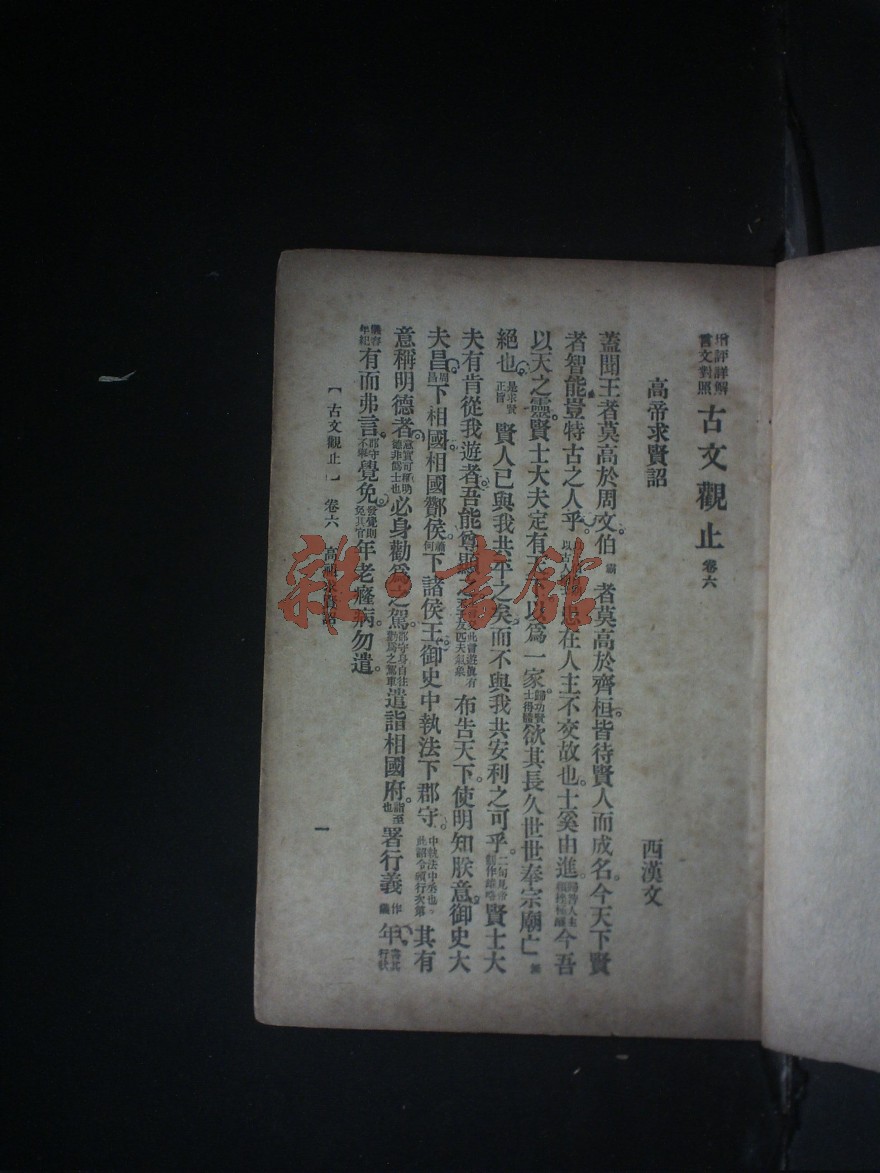 增評詳解
言文對照
古文觀止 卷六
高帝求賢詔 西漢文
蓋聞王者莫高於周文。伯霸者莫高於齊桓。皆待賢人而成名。今天下賢
者智能。豈特古之人乎。患在人主不交故也。士奚由進。今吾
以天之靈。賢士大夫。定有天下。以爲一家。歸功賢士得體欲其長久。世世奉宗廟亡無
絕也。是求賢正旨賢人已與我共平之矣。而不與我共安利之。可乎。賢士大
夫有肯從我遊者。吾能尊顯之。布告天下。使明知朕意。御史大
夫昌周昌下相國。相國酇侯蕭何下諸侯王。御史中執法下郡守。其有
意稱明德者。必身勸爲之駕。郡守身自往勸爲之駕車遣詣相國府。詣至也署行義作儀年。
儀容年紀有而弗言。郡守不舉覺免。發覺則免其官年老癃病勿遣。
【古文觀止】 卷六 高祖求賢詔 一
雜·書館